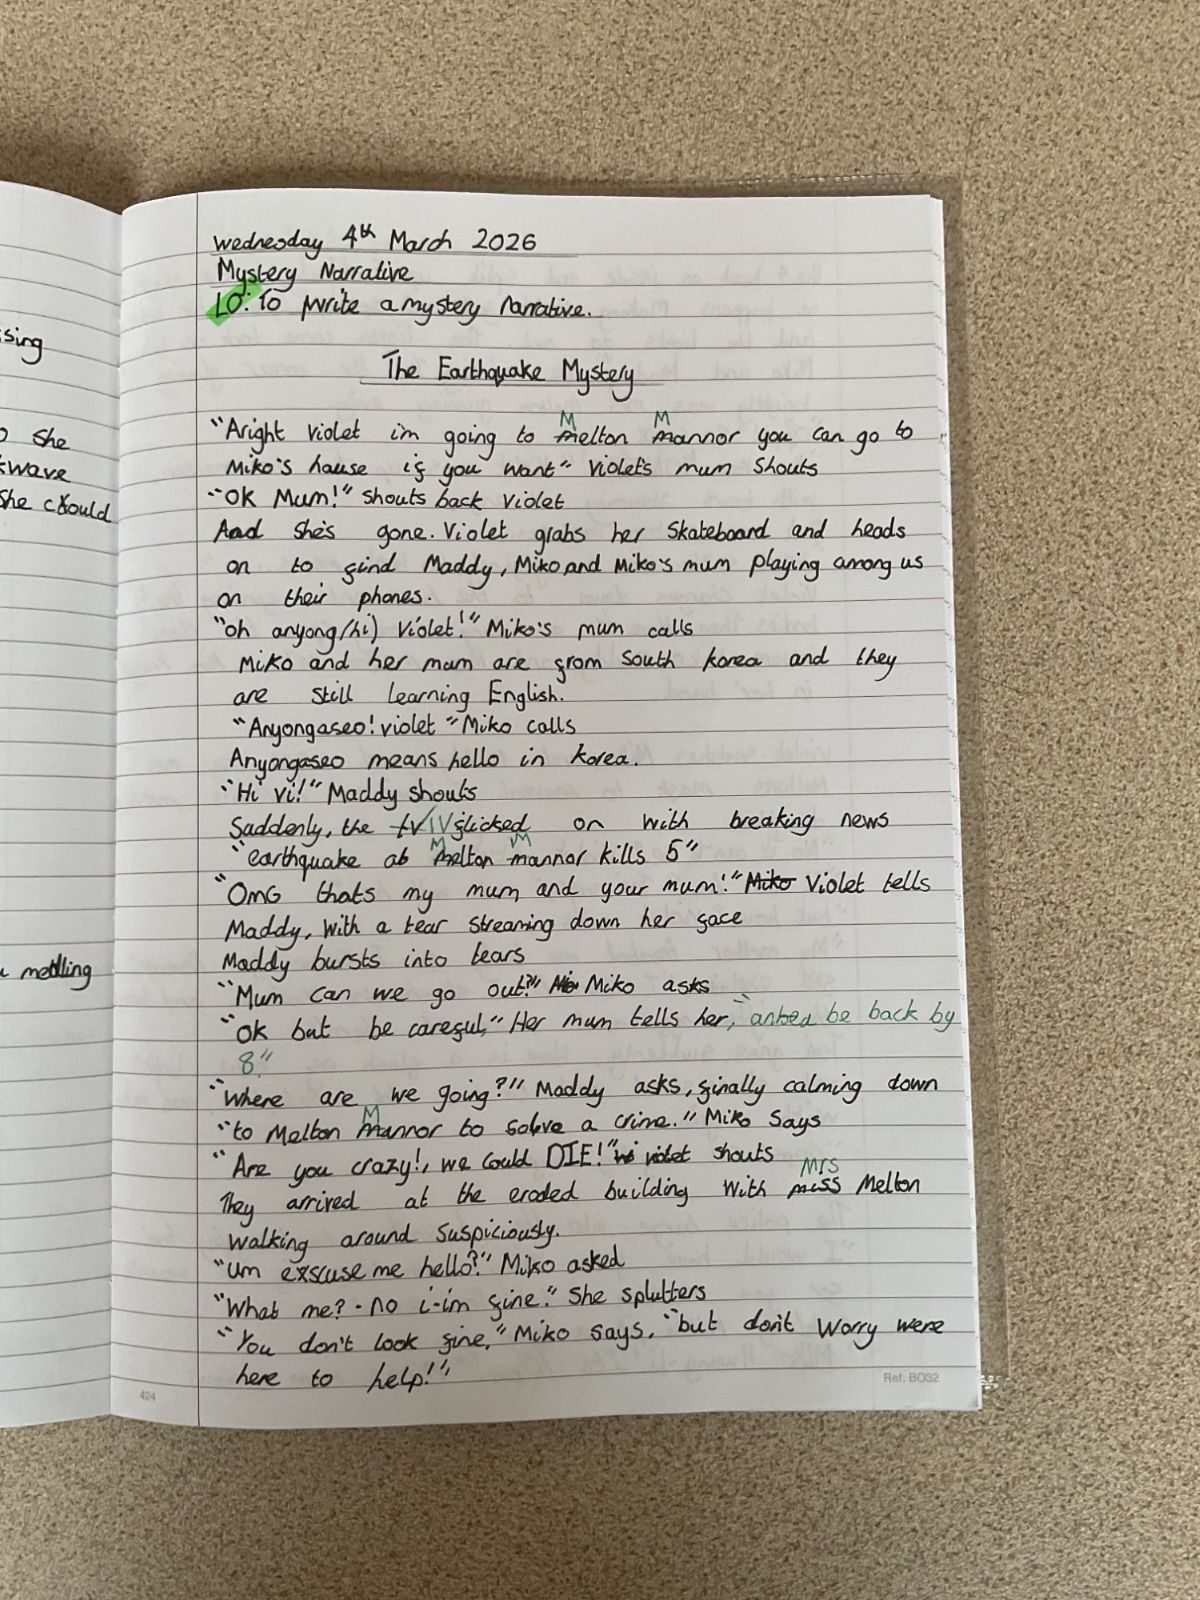 sing
she
kwave
she could
mettling
Wednesday 4th March 2026
Mystery Narrative
LO: To write a mystery narrative.
The Earthquake Mystery
"Aright Violet im going to Melton Mannor you can go to
Miko's house if you want" Violet's mum shouts
"Ok Mum!" shouts back Violet
And she's gone. Violet grabs her skateboard and heads
on to find Maddy, Miko and Miko's mum playing among us
on their phones.
"oh anyong/hi) Violet!" Miko's mum calls
Miko and her mum are from South korea and they
are still learning English.
"Anyongaseo! violet" Miko calls
Anyongaseo means hello in korea.
"Hi vi!" Maddy shouts
Suddenly, the TV flicked on with breaking news
"earthquake at Melton Mannor kills 5"
"OMG thats my mum and your mum!" Miko Violet tells
Maddy, with a tear streaming down her face
Maddy bursts into tears
"Mum can we go out?" Miko asks
"Ok but be careful," Her mum tells her, "and be back by
8."
"Where are we going?" Maddy asks, finally calming down
"to Melton Mannor to solve a crime." Miko says
"Are you crazy!, we could DIE!" violet shouts
They arrived at the eroded building with Mrs Melton
walking around suspiciously.
"Um exscuse me hello?" Miko asked
"What me? - no i-im fine." She splutters
"You don't look fine," Miko says, "but don't worry were
here to help!"
424
Ref: BO32